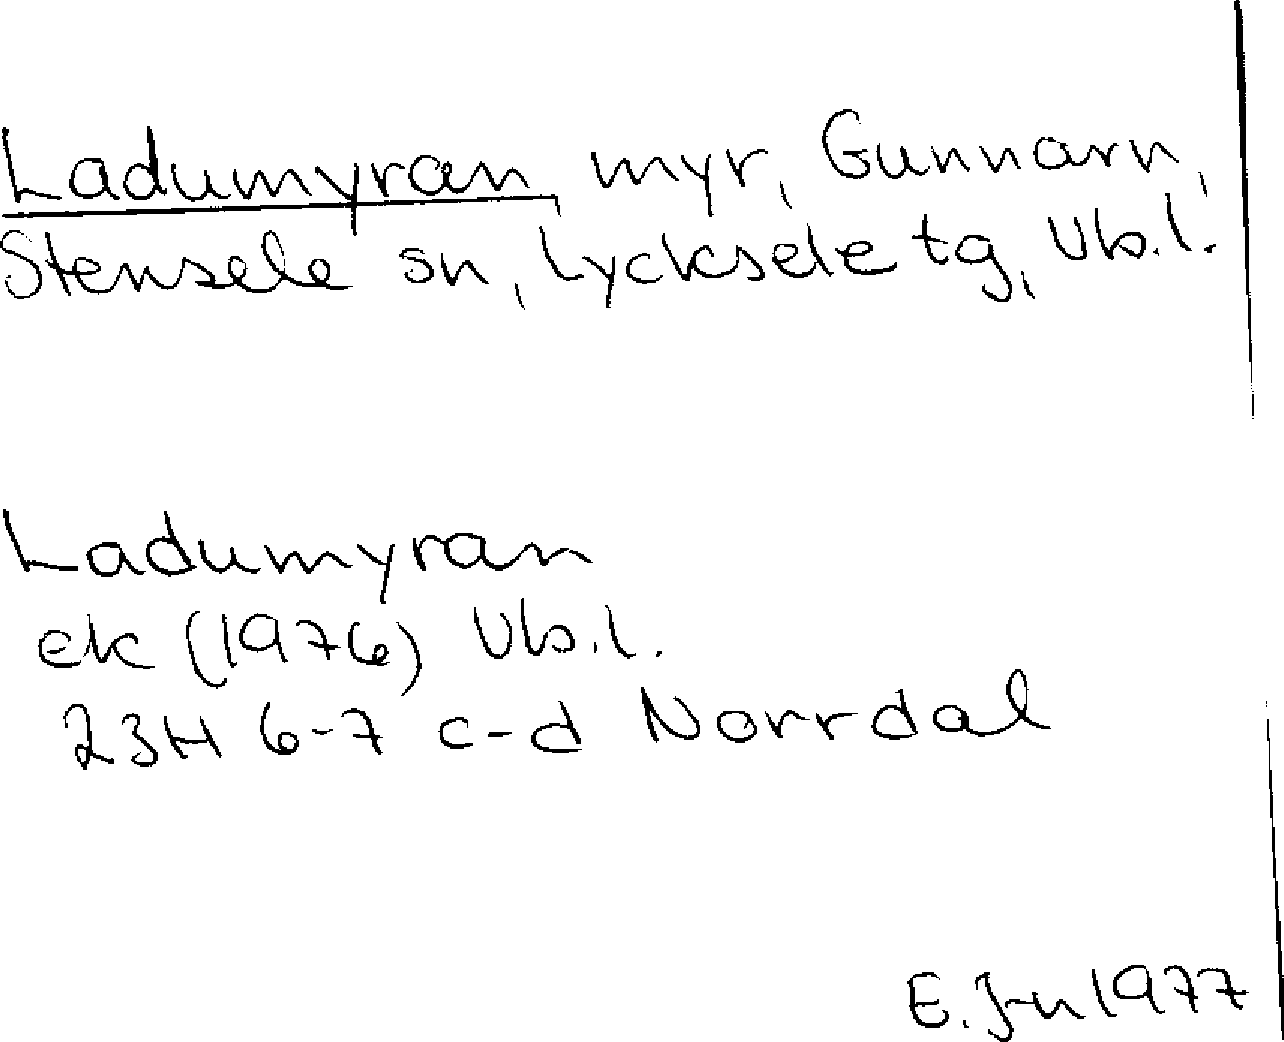 Ladumyran, myr, Gunnarn,
Stensele sn, Lycksele tg, Vb.l.
Ladumyran
ek (1976) Vb.l.
23H 6-7 c-d Norrdal
E. J-n 1977